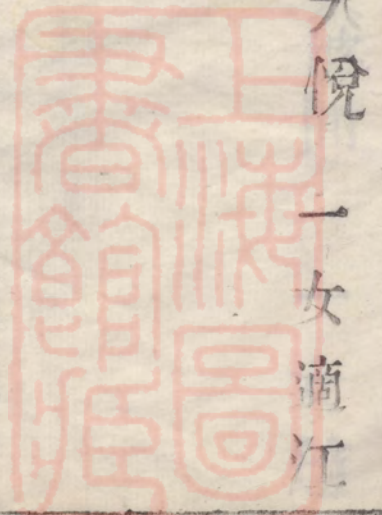 大悅 一女適江
上海圖
書館藏